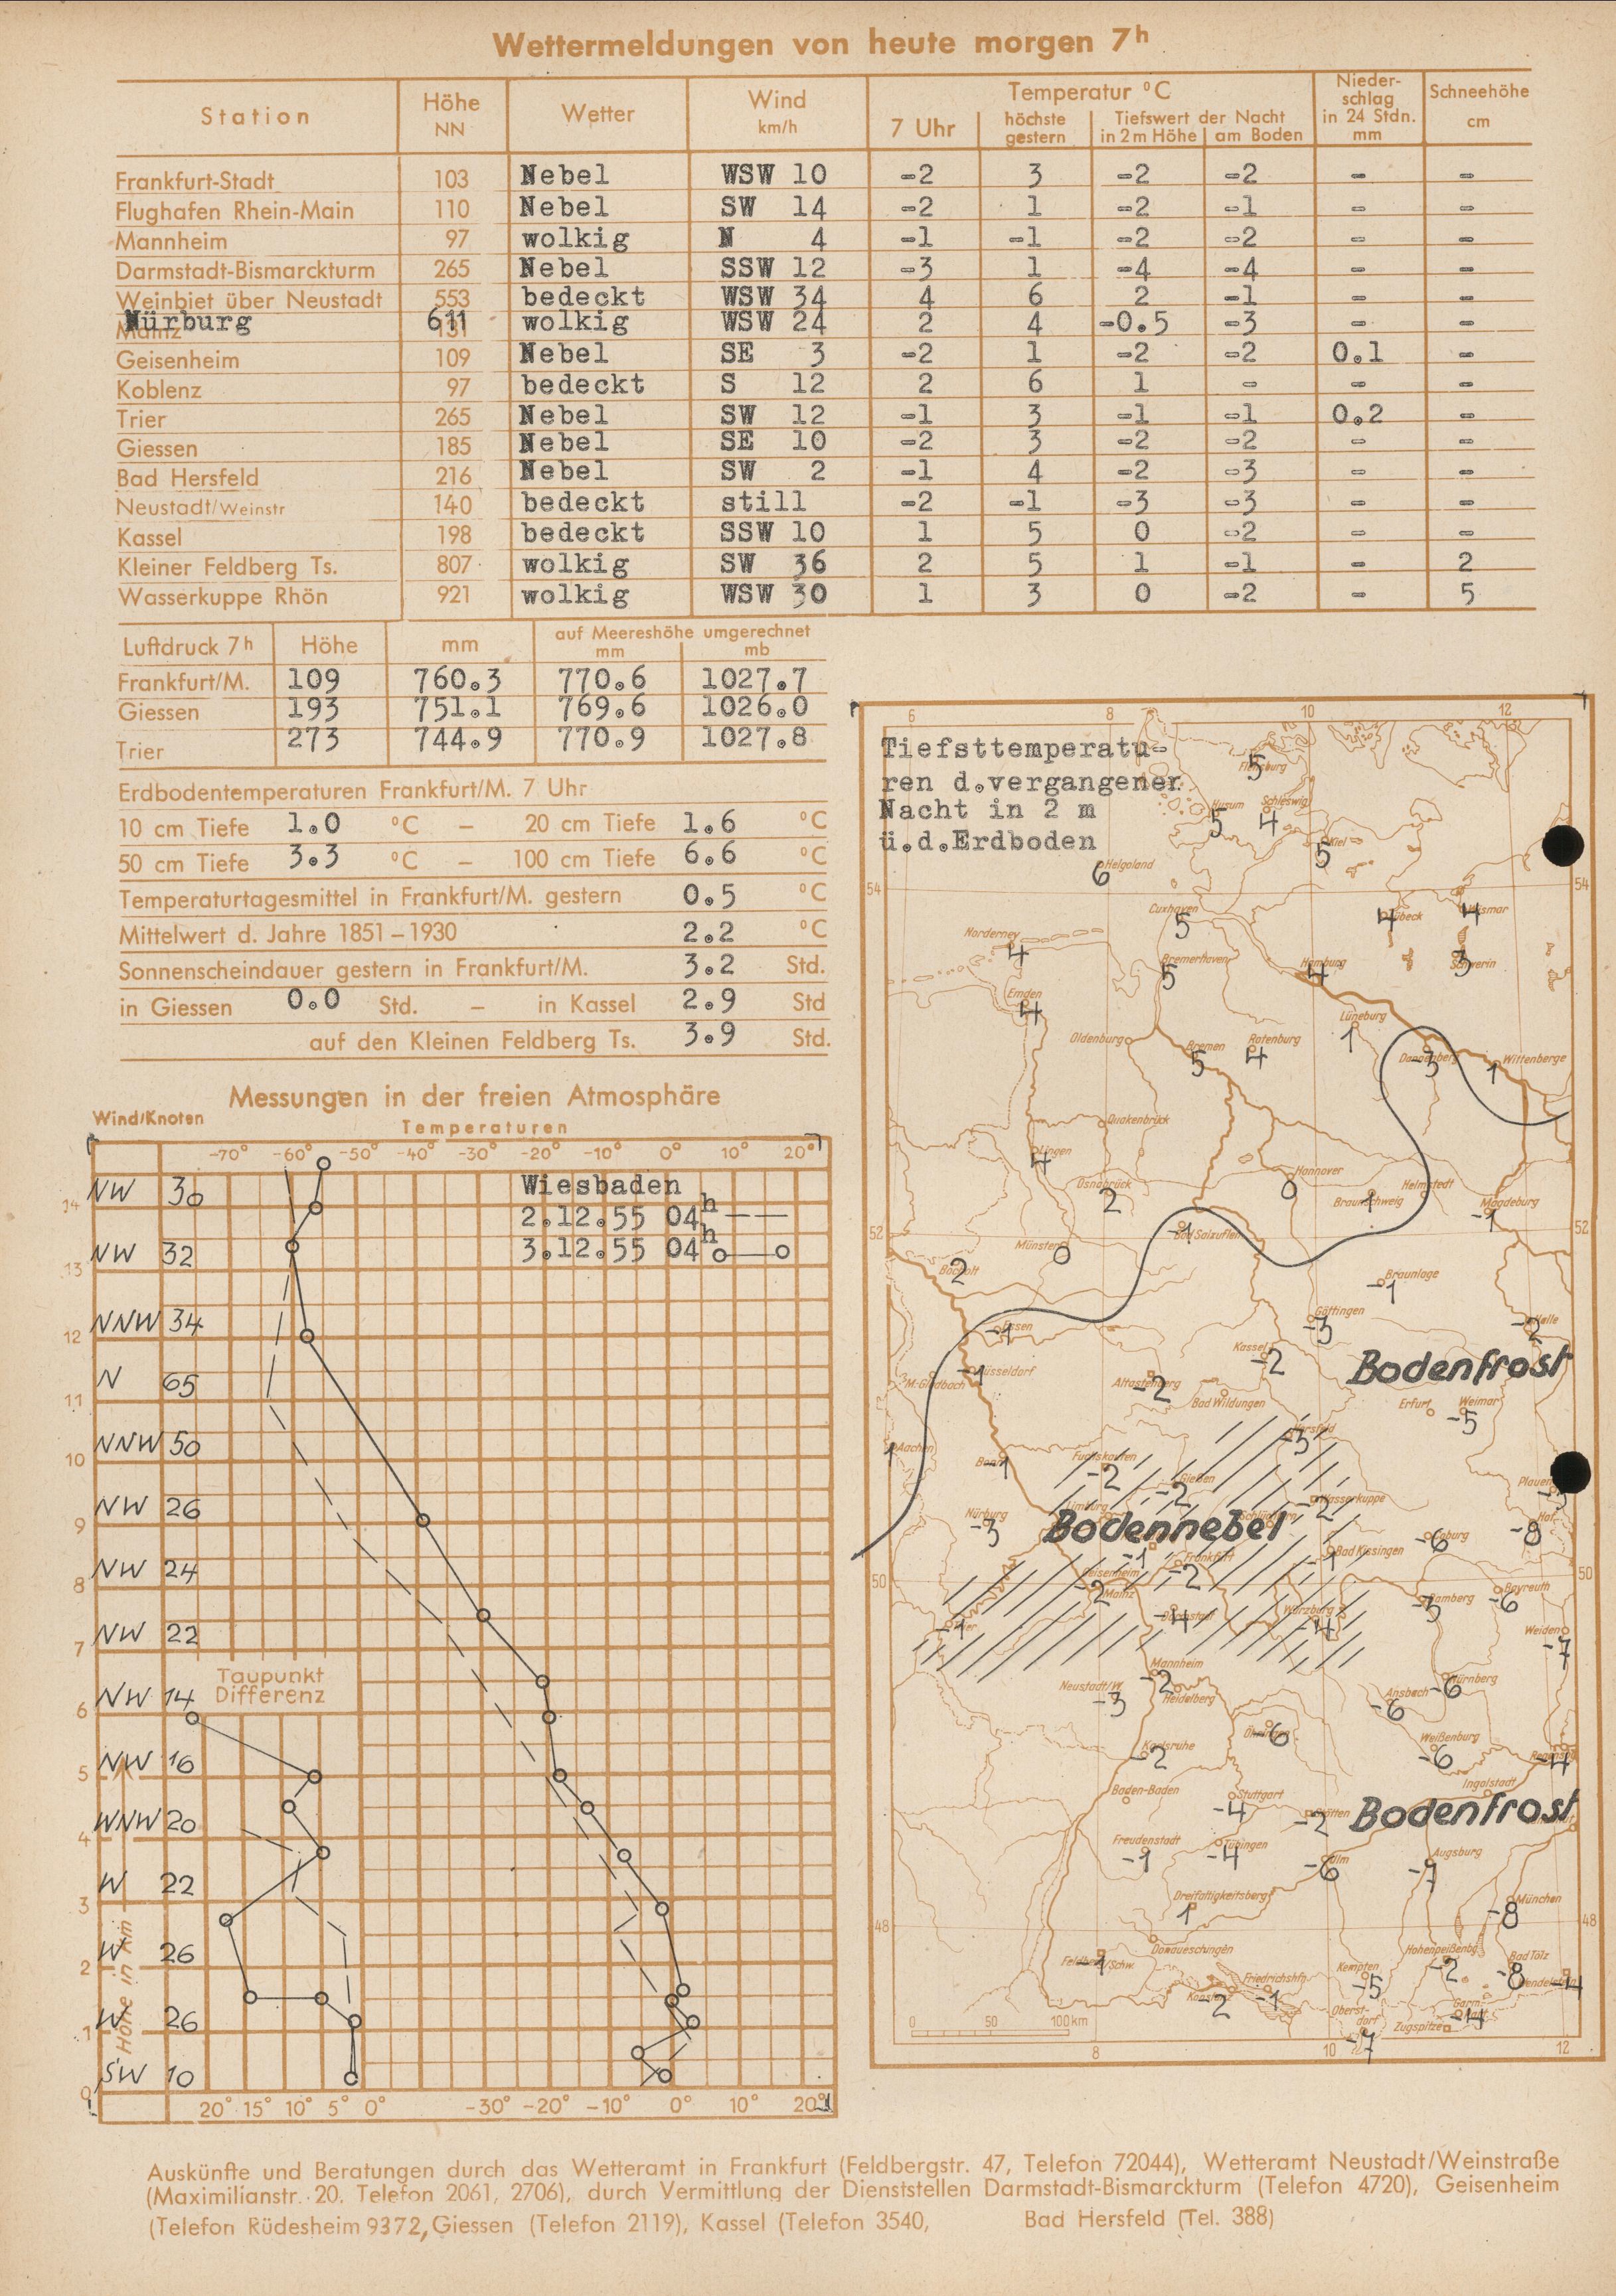 Wettermeldungen von heute morgen 7h
Station Höhe NN Wetter Wind km/h Temperatur °C Nieder-schlag in 24 Stdn. mm Schneehöhe cm
7 Uhr höchste gestern Tiefswert der Nacht in 2 m Höhe am Boden
Frankfurt-Stadt 103 Nebel WSW 10 -2 3 -2 -2 - -
Flughafen Rhein-Main 110 Nebel SW 14 -2 1 -2 -1 - -
Mannheim 97 wolkig N 4 -1 -1 -2 -2 - -
Darmstadt-Bismarckturm 265 Nebel SSW 12 -3 1 -4 -4 - -
Weinbiet über Neustadt 553 bedeckt WSW 34 4 6 2 -1 - -
Nürburg 611 wolkig WSW 24 2 4 -0.5 -3 - -
Geisenheim 109 Nebel SE 3 -2 1 -2 -2 0.1 -
Koblenz 97 bedeckt S 12 2 6 1 - - -
Trier 265 Nebel SW 12 -1 3 -1 -1 0.2 -
Giessen 185 Nebel SE 10 -2 3 -2 -2 - -
Bad Hersfeld 216 Nebel SW 2 -1 4 -2 -3 - -
Neustadt/Weinstr 140 bedeckt still -2 -1 -3 -3 - -
Kassel 198 bedeckt SSW 10 1 5 0 -2 - -
Kleiner Feldberg Ts. 807 wolkig SW 36 2 5 1 -1 - 2
Wasserkuppe Rhön 921 wolkig WSW 30 1 3 0 -2 - 5
Luftdruck 7h Höhe mm auf Meereshöhe umgerechnet
mm mb
Frankfurt/M. 109 760.3 770.6 1027.7
Giessen 193 751.1 769.6 1026.0
Trier 273 744.9 770.9 1027.8
Erdbodentemperaturen Frankfurt/M. 7 Uhr
10 cm Tiefe 1.0 °C – 20 cm Tiefe 1.6 °C
50 cm Tiefe 3.3 °C – 100 cm Tiefe 6.6 °C
Temperaturtagesmittel in Frankfurt/M. gestern 0.5 °C
Mittelwert d. Jahre 1851–1930 2.2 °C
Sonnenscheindauer gestern in Frankfurt/M. 3.2 Std.
in Giessen 0.0 Std. – in Kassel 2.9 Std
auf den Kleinen Feldberg Ts. 3.9 Std.
Messungen in der freien Atmosphäre
Wind/Knoten Temperaturen
-70° -60° -50° -40° -30° -20° -10° 0° 10° 20°
Wiesbaden
2.12.55 04h
3.12.55 04h
14 NW 30
13 NW 32
12 NNW 34
11 N 65
10 NNW 50
9 NW 26
8 NW 24
7 NW 22
Taupunkt
Differenz
6 NW 14
5 NW 16
4 WNW 20
3 W 22
2 W 26
1 W 26
0 SW 10
Höhe in km
20° 15° 10° 5° 0° -30° -20° -10° 0° 10° 20°
6 8 10 12
Tiefsttemperatu-
ren d.vergangener
Nacht in 2 m
ü.d.Erdboden
Flensburg 5
Husum 5 Schleswig 4
Kiel 5
Helgoland 6
54 54
Cuxhaven 5 Lübeck 4 Wismar 4
Norderney 4
Bremerhaven 5 Hamburg 4 Schwerin 3
Emden 4
Lüneburg 1
Oldenburg Bremen 5 Rotenburg 4 Dannenberg -3 Wittenberge 1
Quakenbrück
Lingen 4
Osnabrück 2 Hannover 0 Braunschweig 1 Helmstedt Magdeburg -1
52 52
Münster 0 Bad Salzuflen -1
Bocholt 2
Braunlage -1
Essen -1 Göttingen -3 Halle -2
Kassel -2
Bodenfrost
M-Gladbach Düsseldorf -1 Altastenberg -2 Bad Wildungen
Erfurt Weimar -5
Aachen 1 Bonn -1 Fuchskauten -2 Gießen -2 Hersfeld -3
Plauen
Nürburg -3 Limburg Wasserkuppe -2
Bodennebel
Coburg -6 Hof -8
-1 Frankfurt -2 Bad Kissingen -1
50 50
Geisenheim -2 Mainz
Bamberg -3 Bayreuth -6
Trier -1 Darmstadt -4 Würzburg -4
Weiden -7
Mannheim -2 Heidelberg
Neustadt/W. -3 Ansbach -6 Nürnberg -6
Karlsruhe -2 Öhringen -6 Weißenburg -6 -4
Baden-Baden Stuttgart -4 Ingolstadt
Stötten -2 Bodenfrost
Freudenstadt -1 Tübingen -4 Ulm -6 Augsburg
Dreifaltigkeitsberg 1 München -8
48 48
Feldberg/Schw. Donaueschingen
Konstanz 2 Friedrichshfn. -1 Kempten -5 Hohenpeißenbg. -2 Bad Tölz -8 Wendelstein
Oberst-dorf -7 Garm. Zugspitze
0 50 100 km
8 10 12
Auskünfte und Beratungen durch das Wetteramt in Frankfurt (Feldbergstr. 47, Telefon 72044), Wetteramt Neustadt/Weinstraße
(Maximilianstr. 20. Telefon 2061, 2706), durch Vermittlung der Dienststellen Darmstadt-Bismarckturm (Telefon 4720), Geisenheim
(Telefon Rüdesheim 9372, Giessen (Telefon 2119), Kassel (Telefon 3540, Bad Hersfeld (Tel. 388)